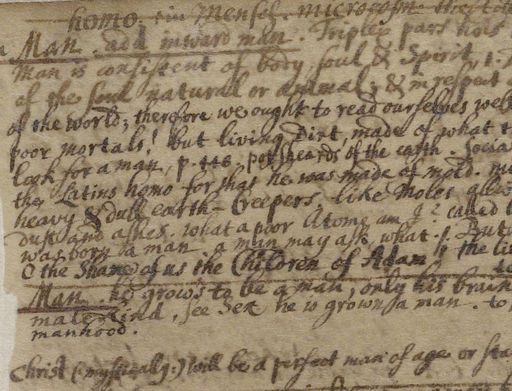 homo. ein Mensch. microcosm
Man. add inward man. Triplex pars hois
Man is consistent of body, soul & Spirit.
of the soul natural or animal; & in respect
of the world; therefore we ought to read ourselves well
poor mortals! but living Dirt, made of what t
look for a man, p. 446, potsheards of the earth. Social
the Latins homo for that he was made of mold. me
heavy & dull earth-Creepers, like moles
dust and ashes. what a poor Atome am I? called
was born /a man. a man may ask what.! But
O the Shame of us the Children of Adam! the li
Man. He grows to be a man, only his brain
male kind, see Sex he is grown /a man. to
manhood.
Christ (:mystically:) will be a perfect man of age or sta